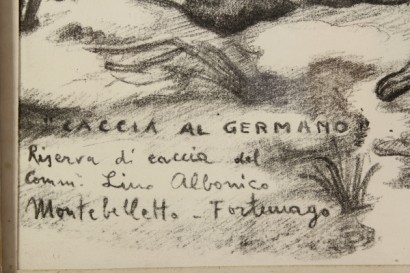 "CACCIA AL GERMANO"
Riserva di caccia del
Comm. Lino Albonico
Montebelletto - Fortunago